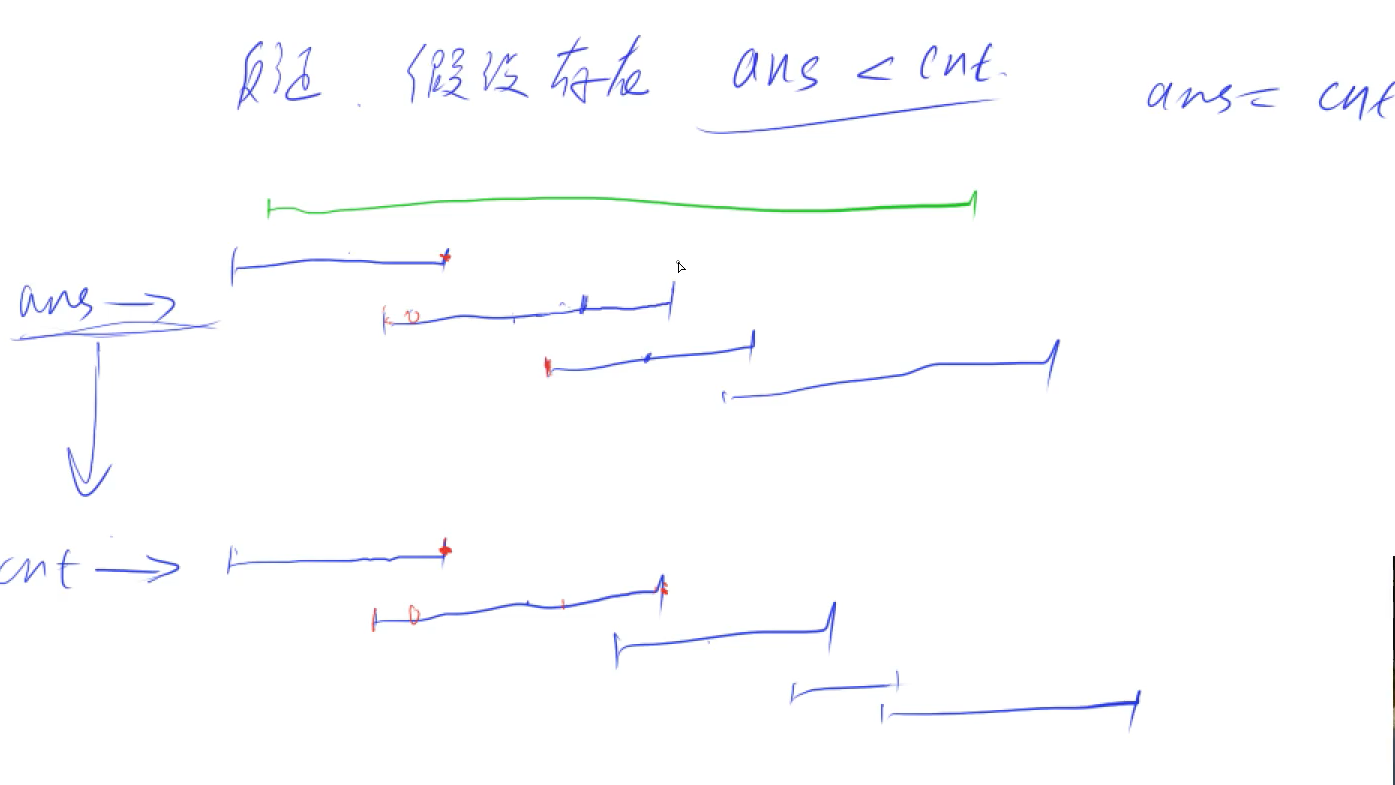 反证. 假设存在 ans < cnt. ans = cnt
ans →
cnt →